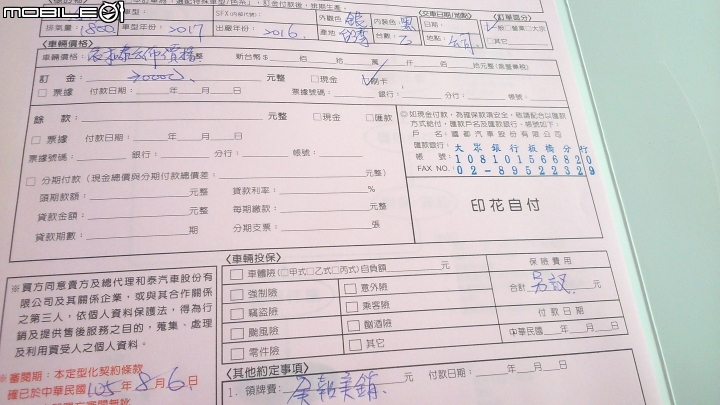 mobile01
排氣量：1800 車型年份：2017 出廠年份：2016
SFX(內裝代碼)：
外觀色 銀 內裝色 黑
產地 台灣 台數
<交車日期/地點>
日期：
地點：公司
<訂單區分>
一般 營業 大宗
其它
<車輛價格>
車輛價格： 新台幣$ 佰 拾 萬 仟 佰 拾元整(含營業稅)
訂 金： 元整 現金 刷卡
票據 付款日期： 年 月 日 票據號碼： 銀行： 分行： 帳號：
餘 款： 元整 現金 匯款
票據 付款日期： 年 月 日
票據號碼： 銀行： 分行： 帳號：
分期付款 (現金總價與分期付款總價差： 元整)
頭期款額： 元整 貸款利率： %
貸款金額： 元整 每期繳款： 元整
貸款期數： 期 分期支票： 張
◎如現金付款，為確保款項安全，敬請配合以匯款
方式給付，匯款戶名及匯款銀行、帳號如下：
戶 名：國都汽車股份有限公司
匯款銀行：大眾銀行板橋分行
帳 號：108101566820
FAX NO. 02-89522329
印花自付
<車輛投保>
車體險(甲式乙式丙式)自負額 元
強制險 意外險
竊盜險 乘客險
颱風險 酗酒險
零件險 其它
保險費用
合計 另議 元
付款日期
中華民國 年 月 日
※買方同意貴方及總代理和泰汽車股份有
限公司及其關係企業，或與其合作關係
之第三人，依個人資料保護法，得為行
銷及提供售後服務之目的，蒐集、處理
及利用買受人之個人資料。
※審閱期：本定型化契約條款
確已於中華民國105年8月6日
<其他約定事項>
1. 領牌費： 元 付款日期： 年 月 日